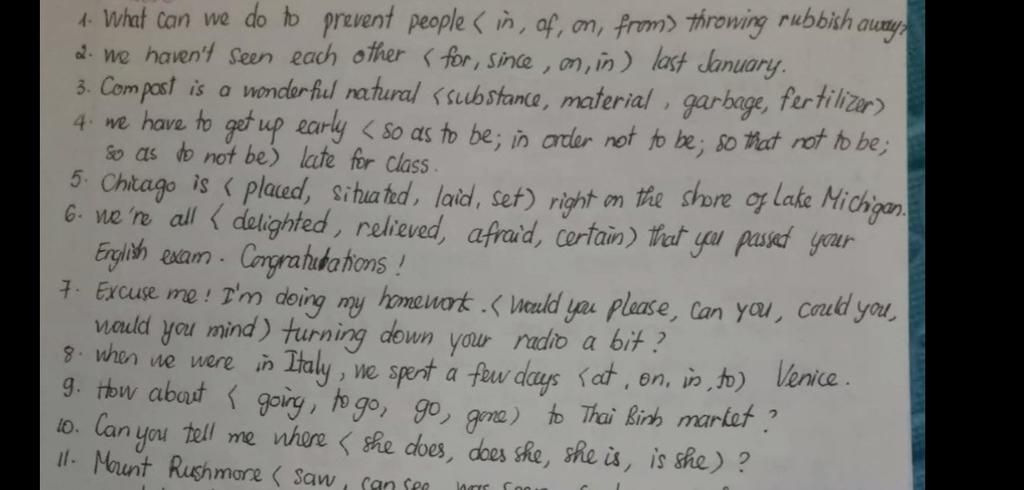 1. What can we do to prevent people < in, of, on, from> throwing rubbish away?
2. we haven't seen each other < for, since, on, in) last January.
3. Compost is a wonderful natural <substance, material, garbage, fertilizer>
4. we have to get up early < so as to be; in order not to be; so that not to be;
so as to not be) late for class.
5. Chicago is < placed, situated, laid, set) right on the shore of Lake Michigan.
6. we're all < delighted, relieved, afraid, certain) that you passed your
English exam. Congratulations!
7. Excuse me! I'm doing my homework. < Would you please, can you, could you,
would you mind) turning down your radio a bit?
8. when we were in Italy, we spent a few days <at, on, in, to) Venice.
9. How about < going, to go, go, gone) to Thai Binh market?
10. Can you tell me where < she does, does she, she is, is she)?
11. Mount Rushmore < saw, can see, was seen,